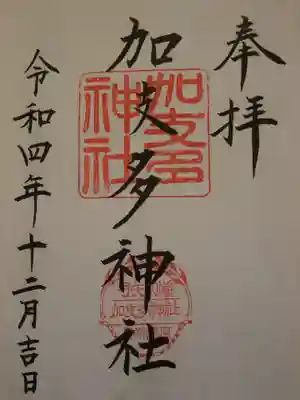 奉拝
加支多神社
令和四年十二月吉日
加支多
神社